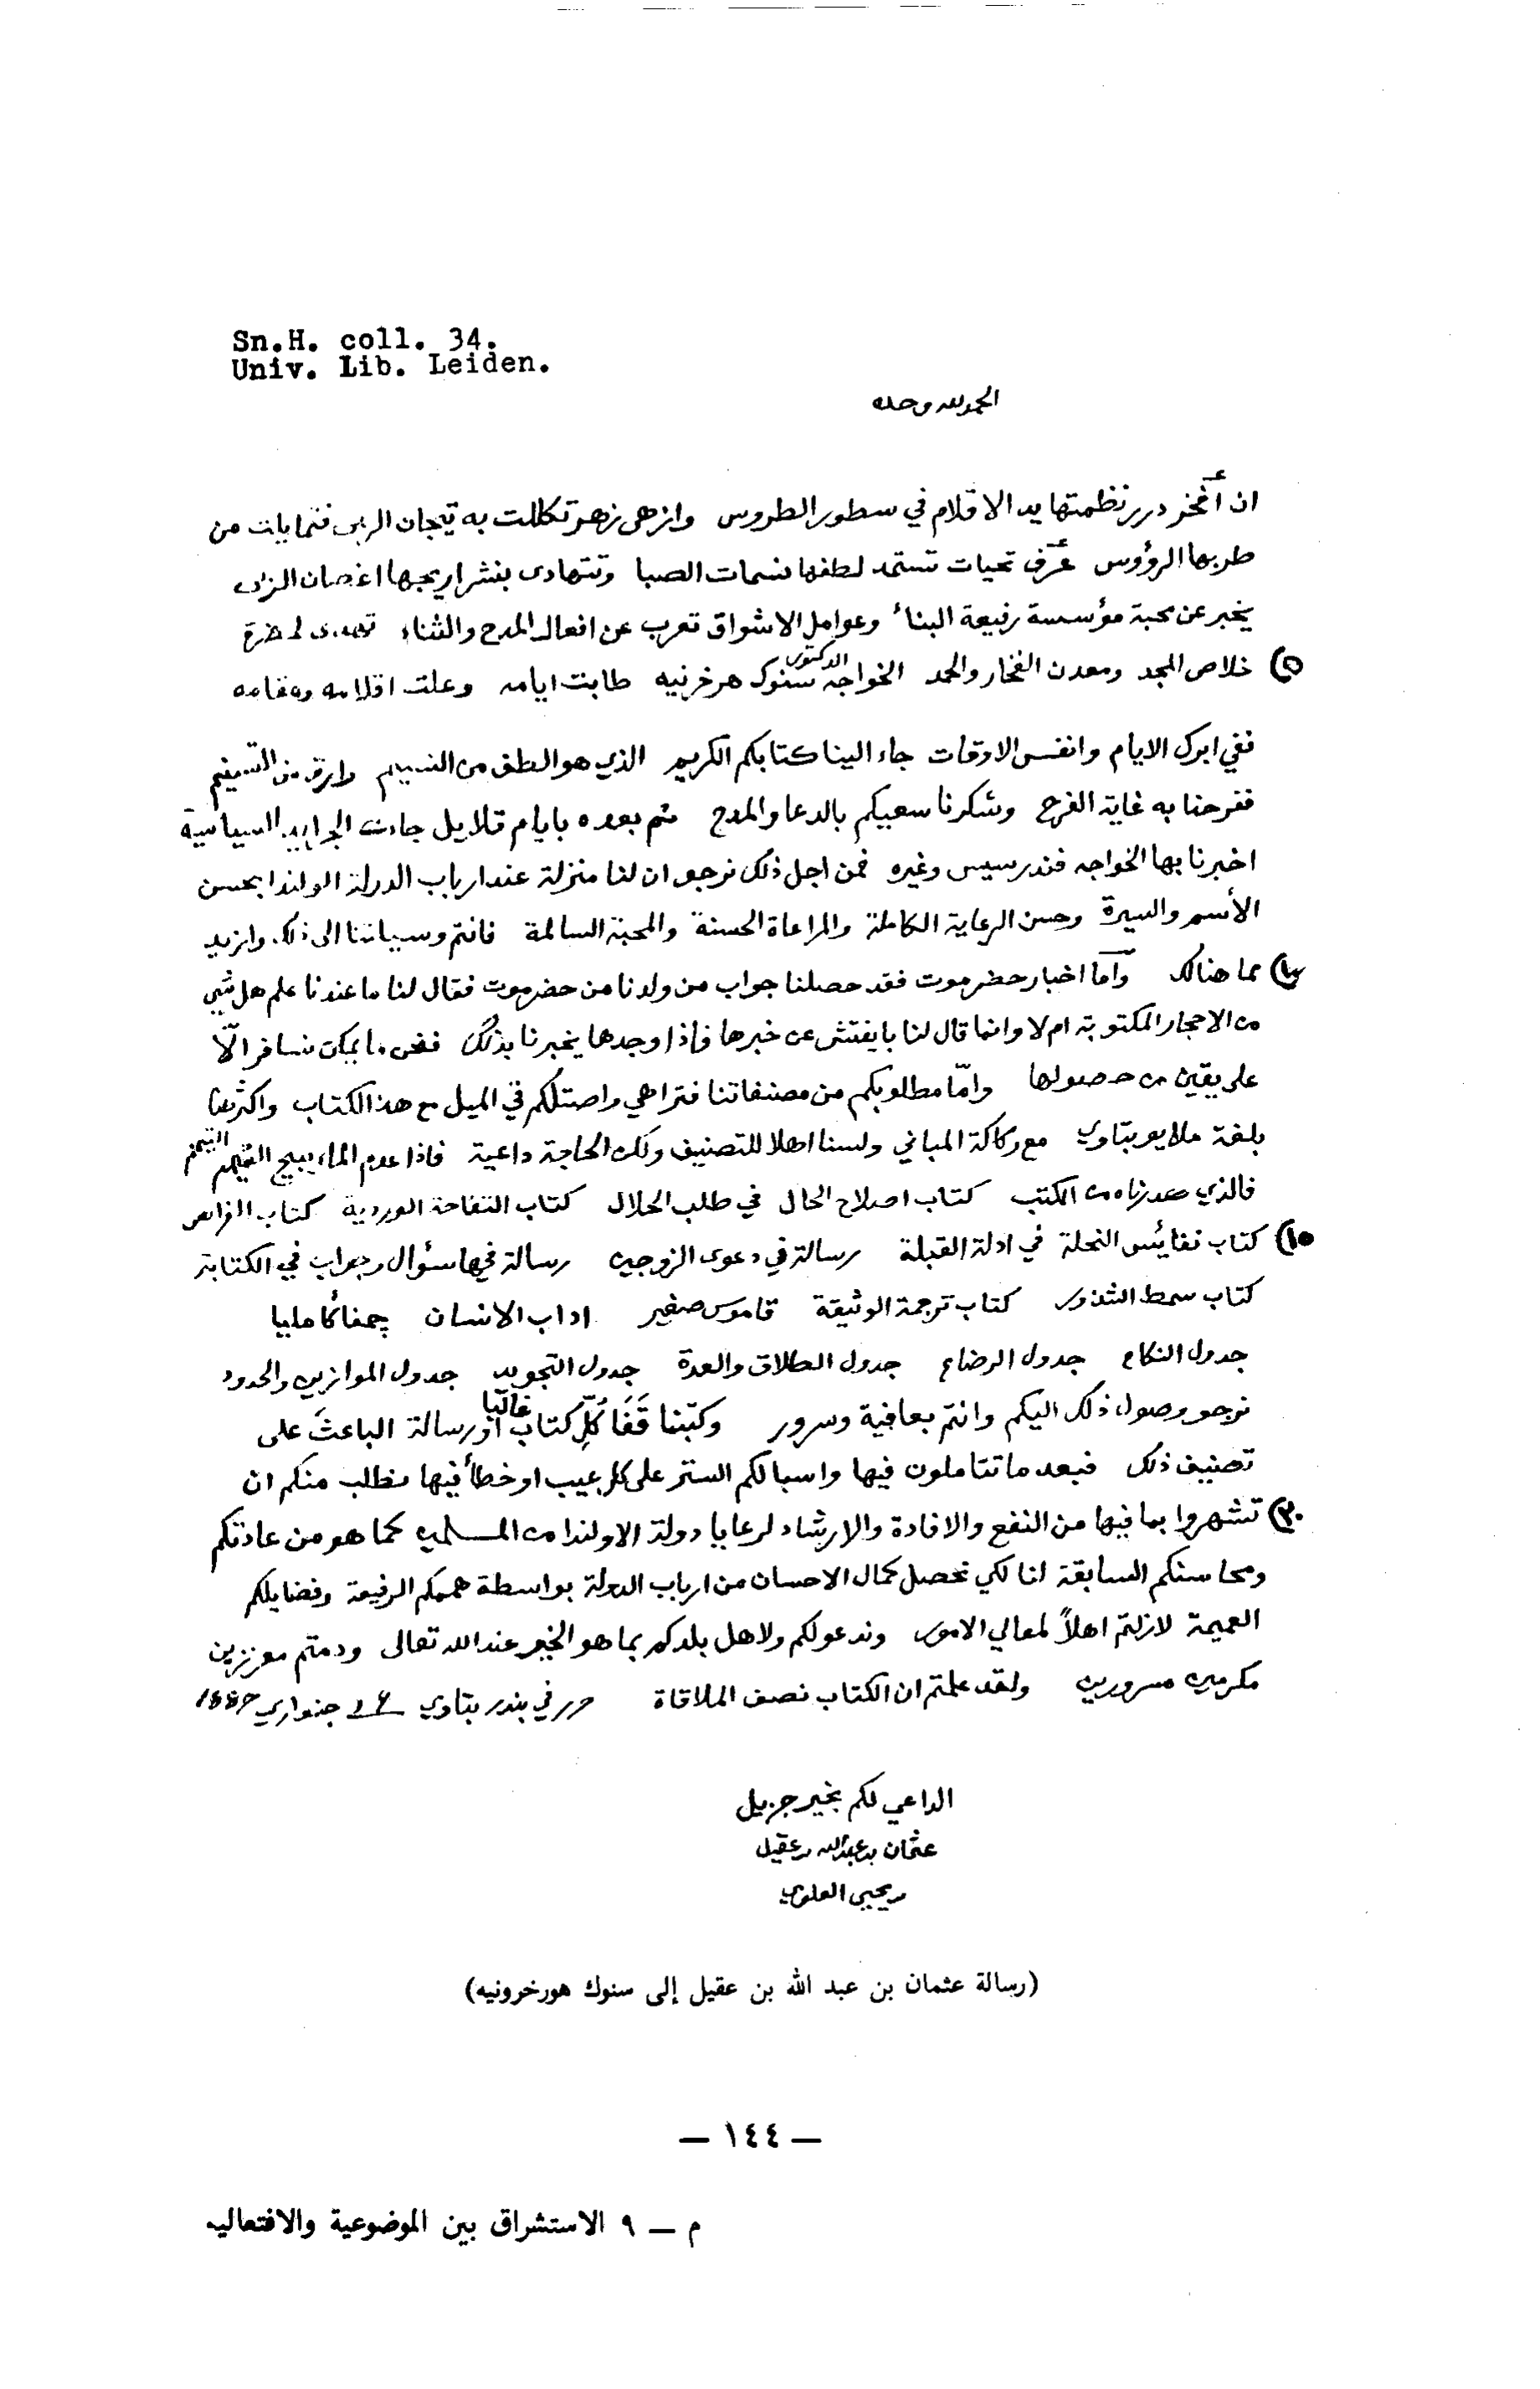 Sn.H. coll. 34.
Univ. Lib. Leiden.
الحمد لله وحده
ان أفخر درر نظمتها يد الاقلام في سطور الطروس وازهى زهر تكللت به تيجان الربى فتمايلت من
طربها الرؤوس غرف تحيات تستمد لطفها نسمات الصبا وتتهادى بنشر اريجها اغصان
يخبر عن محبة مؤسسة رفيعة البناء وعوامل الاشواق تعرب عن افعال المدح والثناء تهدى لحضرة
٥) خلاص المجد ومعدن الفخار والحمد الخواجه الدكتور سنوك هرخرنيه طابت ايامه وعلت اقلامه ومقامه
ففي ابرك الايام وانفس الاوقات جاء الينا كتابكم الكريم الذي هو الطف من النسيم وارق من التسنيم
ففرحنا به غاية الفرح وشكرنا سعيكم بالدعا والمدح ثم بعده بايام قلايل جاءت الجرايد السياسية
اخبرنا بها الخواجه فندرسيس وغيره فمن اجل ذلك نرجو ان لنا منزلة عند ارباب الدولة الولندا بحسن
الأسم والسيرة وحسن الرعاية الكاملة والمراعاة الحسنة والمحبة السالمة فانتم وسيلتنا الى ذلك وازيد
١٠) مما هنالك وأما اخبار حضرموت فقد حصلنا جواب من ولدنا من حضرموت فقال لنا ما عندنا علم هل شي
من الاحجار المكتوبة ام لا وانما قال لنا بايفتش عن خبرها فاذا وجدها يخبرنا بذلك فنحن ما يمكن نسافر الّا
على يقين من حصولها وامّا مطلوبكم من مصنفاتنا فتراهي واصلتكم في الميل مع هذا الكتاب واكثرها
بلغة ملايو بتاوي مع ركاكة المباني ولسنا اهلا للتصنيف ولكن الحاجة داعية فاذا عدم الماء يبيح التيمم
فالذي صدرناه من الكتب كتاب اصلاح الحال في طلب الحلال كتاب التفاحة الوردية كتاب الفرائض
١٥) كتاب نفائس النحلة في ادلة القبلة رسالة في دعوى الزوجين رسالة فيها سؤال وجواب في الكتابة
كتاب سمط الشذور كتاب ترجمة الوثيقة قاموس صغير اداب الانسان
جدول النكاح جدول الرضاع جدول الطلاق والعدة جدول التجويد جدول الموازين والحدود
نرجو وصول ذلك اليكم وانتم بعافية وسرور وكتبنا قَفَا كُلّ كتاب غالبًا او رسالة الباعثَ على
تصنيف ذلك فبعد ما تتاملون فيها واسبالكم الستر على كل عيب او خطأ فيها نطلب منكم ان
٢٠) تشهروا بما فيها من النفع والافادة والارشاد لرعايا دولة الاولندا من المسلمين كما هو من عادتكم
ومحاسنكم السابقة لنا لكي نحصل كمال الاحسان من ارباب الدولة بواسطة هممكم الرفيعة وفضايلكم
العميمة لازلتم اهلاً لمعالي الامور وندعو لكم ولاهل بلدكم بما هو الخير عند الله تعالى ودمتم معززين
مكرمين مسرورين ولقد علمتم ان الكتاب نصف الملاقاة حرر في بندر بتاوي جنواري
الداعي لكم بخير جزيل
عثمان بن عبد الله بن عقيل
بن يحيى العلوي
(رسالة عثمان بن عبد الله بن عقيل إلى سنوك هورخرونيه)
— ١٤٤ —
م — ٩ الاستشراق بين الموضوعية والافتعاليه